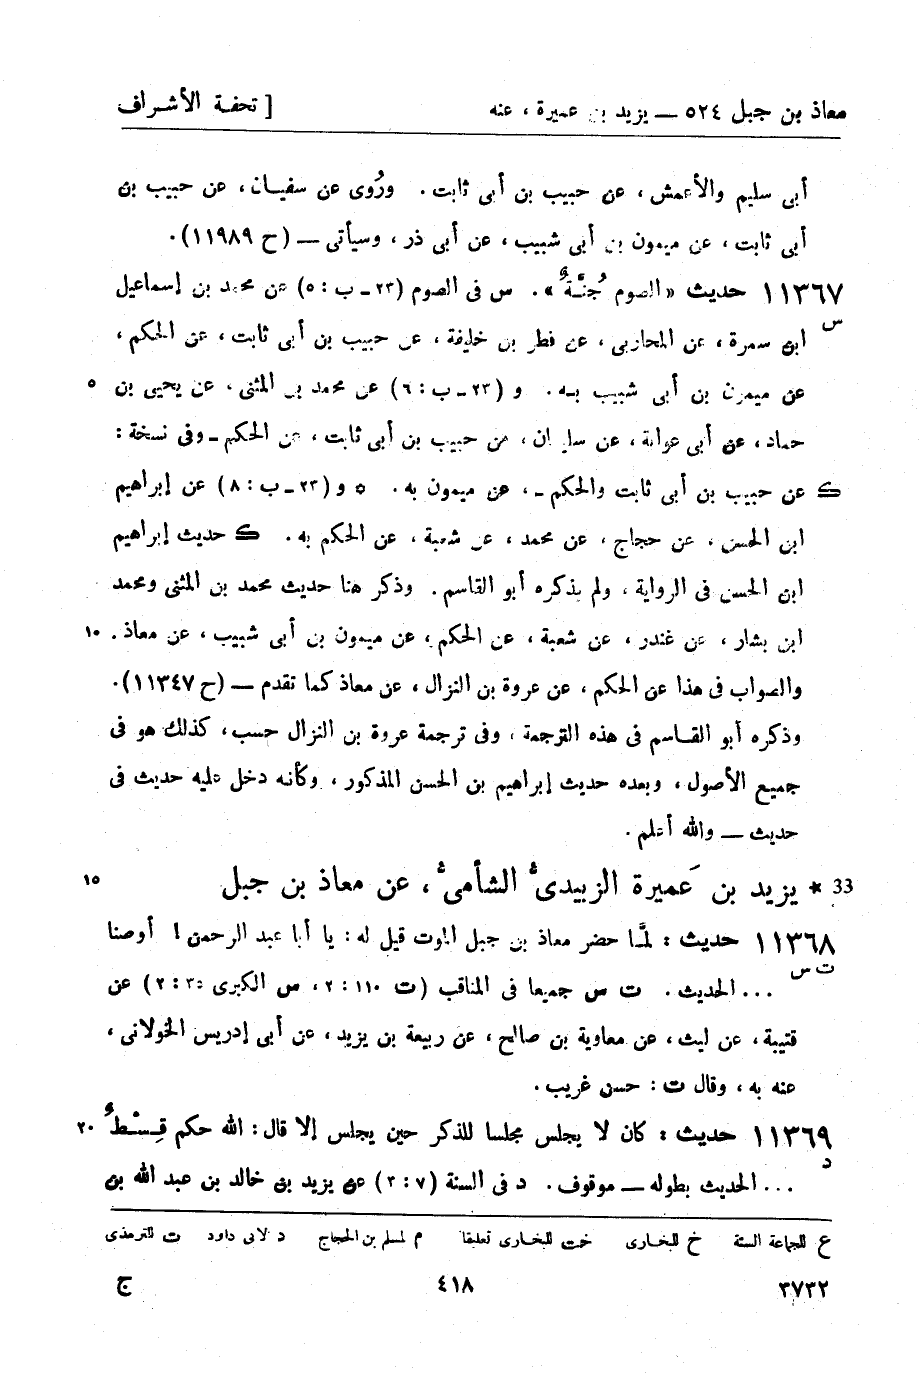 معاذ بن جبل ٥٢٤ ــ يزيد بن عميرة ، عنه [ تحفة الأشراف
أبى سليم والأعمش ، عن حبيب بن أبى ثابت . ورُوى عن سفيان ، عن حبيب بن
أبى ثابت ، عن ميمون بن أبى شبيب ، عن أبى ذر ، وسيأتى ــ (ح ١١٩٨٩) .
١١٣٦٧ حديث « الصوم جُنَّةٌ » . س فى الصوم (٢٣ ـ ب : ٥) عن محمد بن إسماعيل
س
ابن سمرة ، عن المحاربى ، عن فطر بن خليفة ، عن حبيب بن أبى ثابت ، عن الحكم ،
عن ميمون بن أبى شبيب به . و (٢٣ ـ ب : ٦) عن محمد بن المثنى ، عن يحيى بن ٥
حماد ، عن أبى عوانة ، عن سليمان ، عن حبيب بن أبى ثابت ، عن الحكم ـ وفى نسخة :
ك عن حبيب بن أبى ثابت والحكم ـ ، عن ميمون به . * و (٢٣ ـ ب : ٨) عن إبراهيم
ابن الحسن ، عن حجاج ، عن محمد ، عن شعبة ، عن الحكم به . ك حديث إبراهيم
ابن الحسن فى الرواية ، ولم يذكره أبو القاسم . وذكر هنا حديث محمد بن المثنى ومحمد
ابن بشار ، عن غندر ، عن شعبة ، عن الحكم ، عن ميمون بن أبى شبيب ، عن معاذ . ١٠
والصواب فى هذا عن الحكم ، عن عروة بن النزال ، عن معاذ كما تقدم ــ (ح ١١٣٤٧) .
وذكره أبو القاسم فى هذه الترجمة ، وفى ترجمة عروة بن النزال حسب ، كذلك هو فى
جميع الأصول ، وبعده حديث إبراهيم بن الحسن المذكور ، وكأنه دخل عليه حديث فى
حديث ــ والله أعلم .
33 * يزيد بن عَميرة الزبيدىُّ الشأمىُّ ، عن معاذ بن جبل ١٥
١١٣٦٨ حديث : لمَّا حضر معاذ بن جبل الموت قيل له : يا أبا عبد الرحمن ! أوصنا
ت س
... الحديث . ت س جميعا فى المناقب (ت ١١٠ : ٢ ، س الكبرى ٣٥ : ٢) عن
قتيبة ، عن ليث ، عن معاوية بن صالح ، عن ربيعة بن يزيد ، عن أبى إدريس الخولانى ،
عنه به ، وقال ت : حسن غريب .
١١٣٦٩ حديث : كان لا يجلس مجلسا للذكر حين يجلس إلا قال : الله حكم قِسْطٌ ٢٠
د
... الحديث بطوله ــ موقوف . د فى السنة (٧ : ٣) عن يزيد بن خالد بن عبد الله بن
ع للجماعة الستة خ للبخارى خت للبخارى تعليقا م لمسلم بن الحجاج د لأبى داود ت للترمذى
٣٧٣٢ ٤١٨ ج